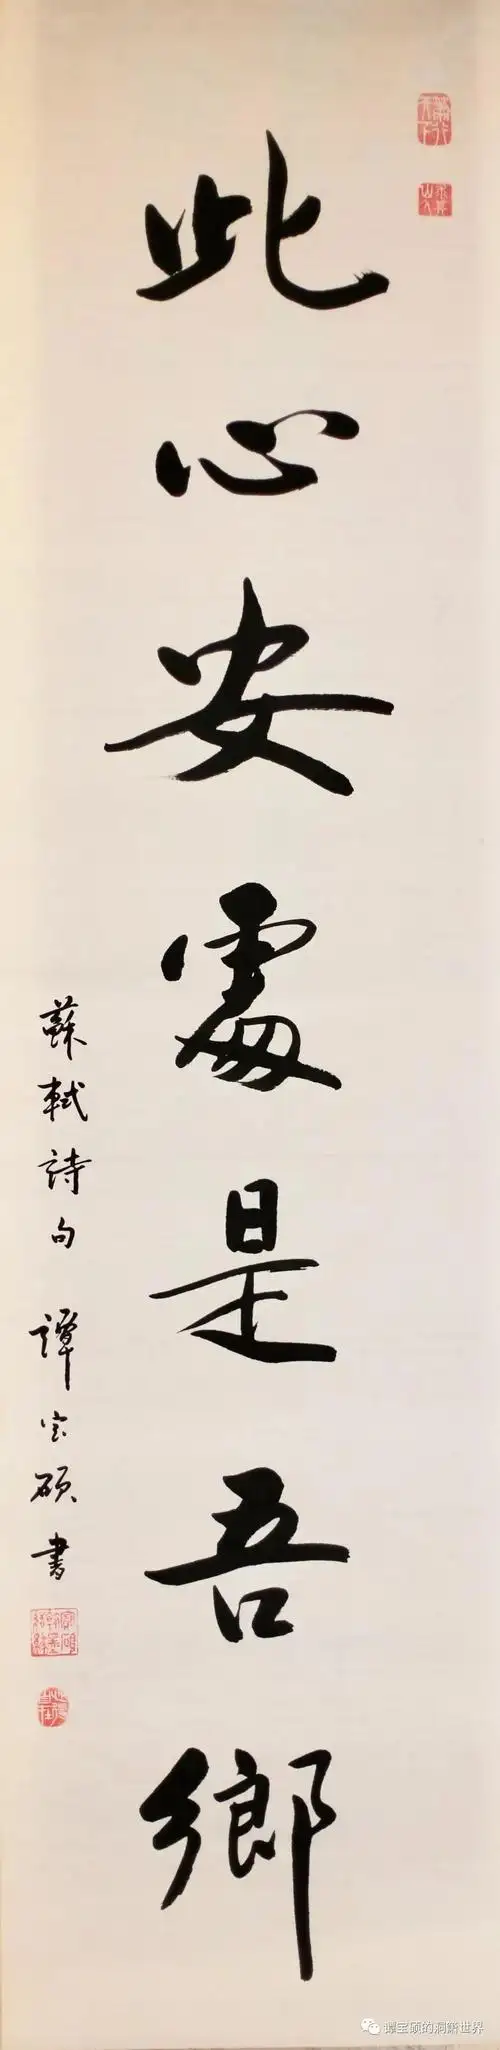 此心安處是吾鄉
蘇軾詩句 譚宝碩書
谭宝硕的洞箫世界